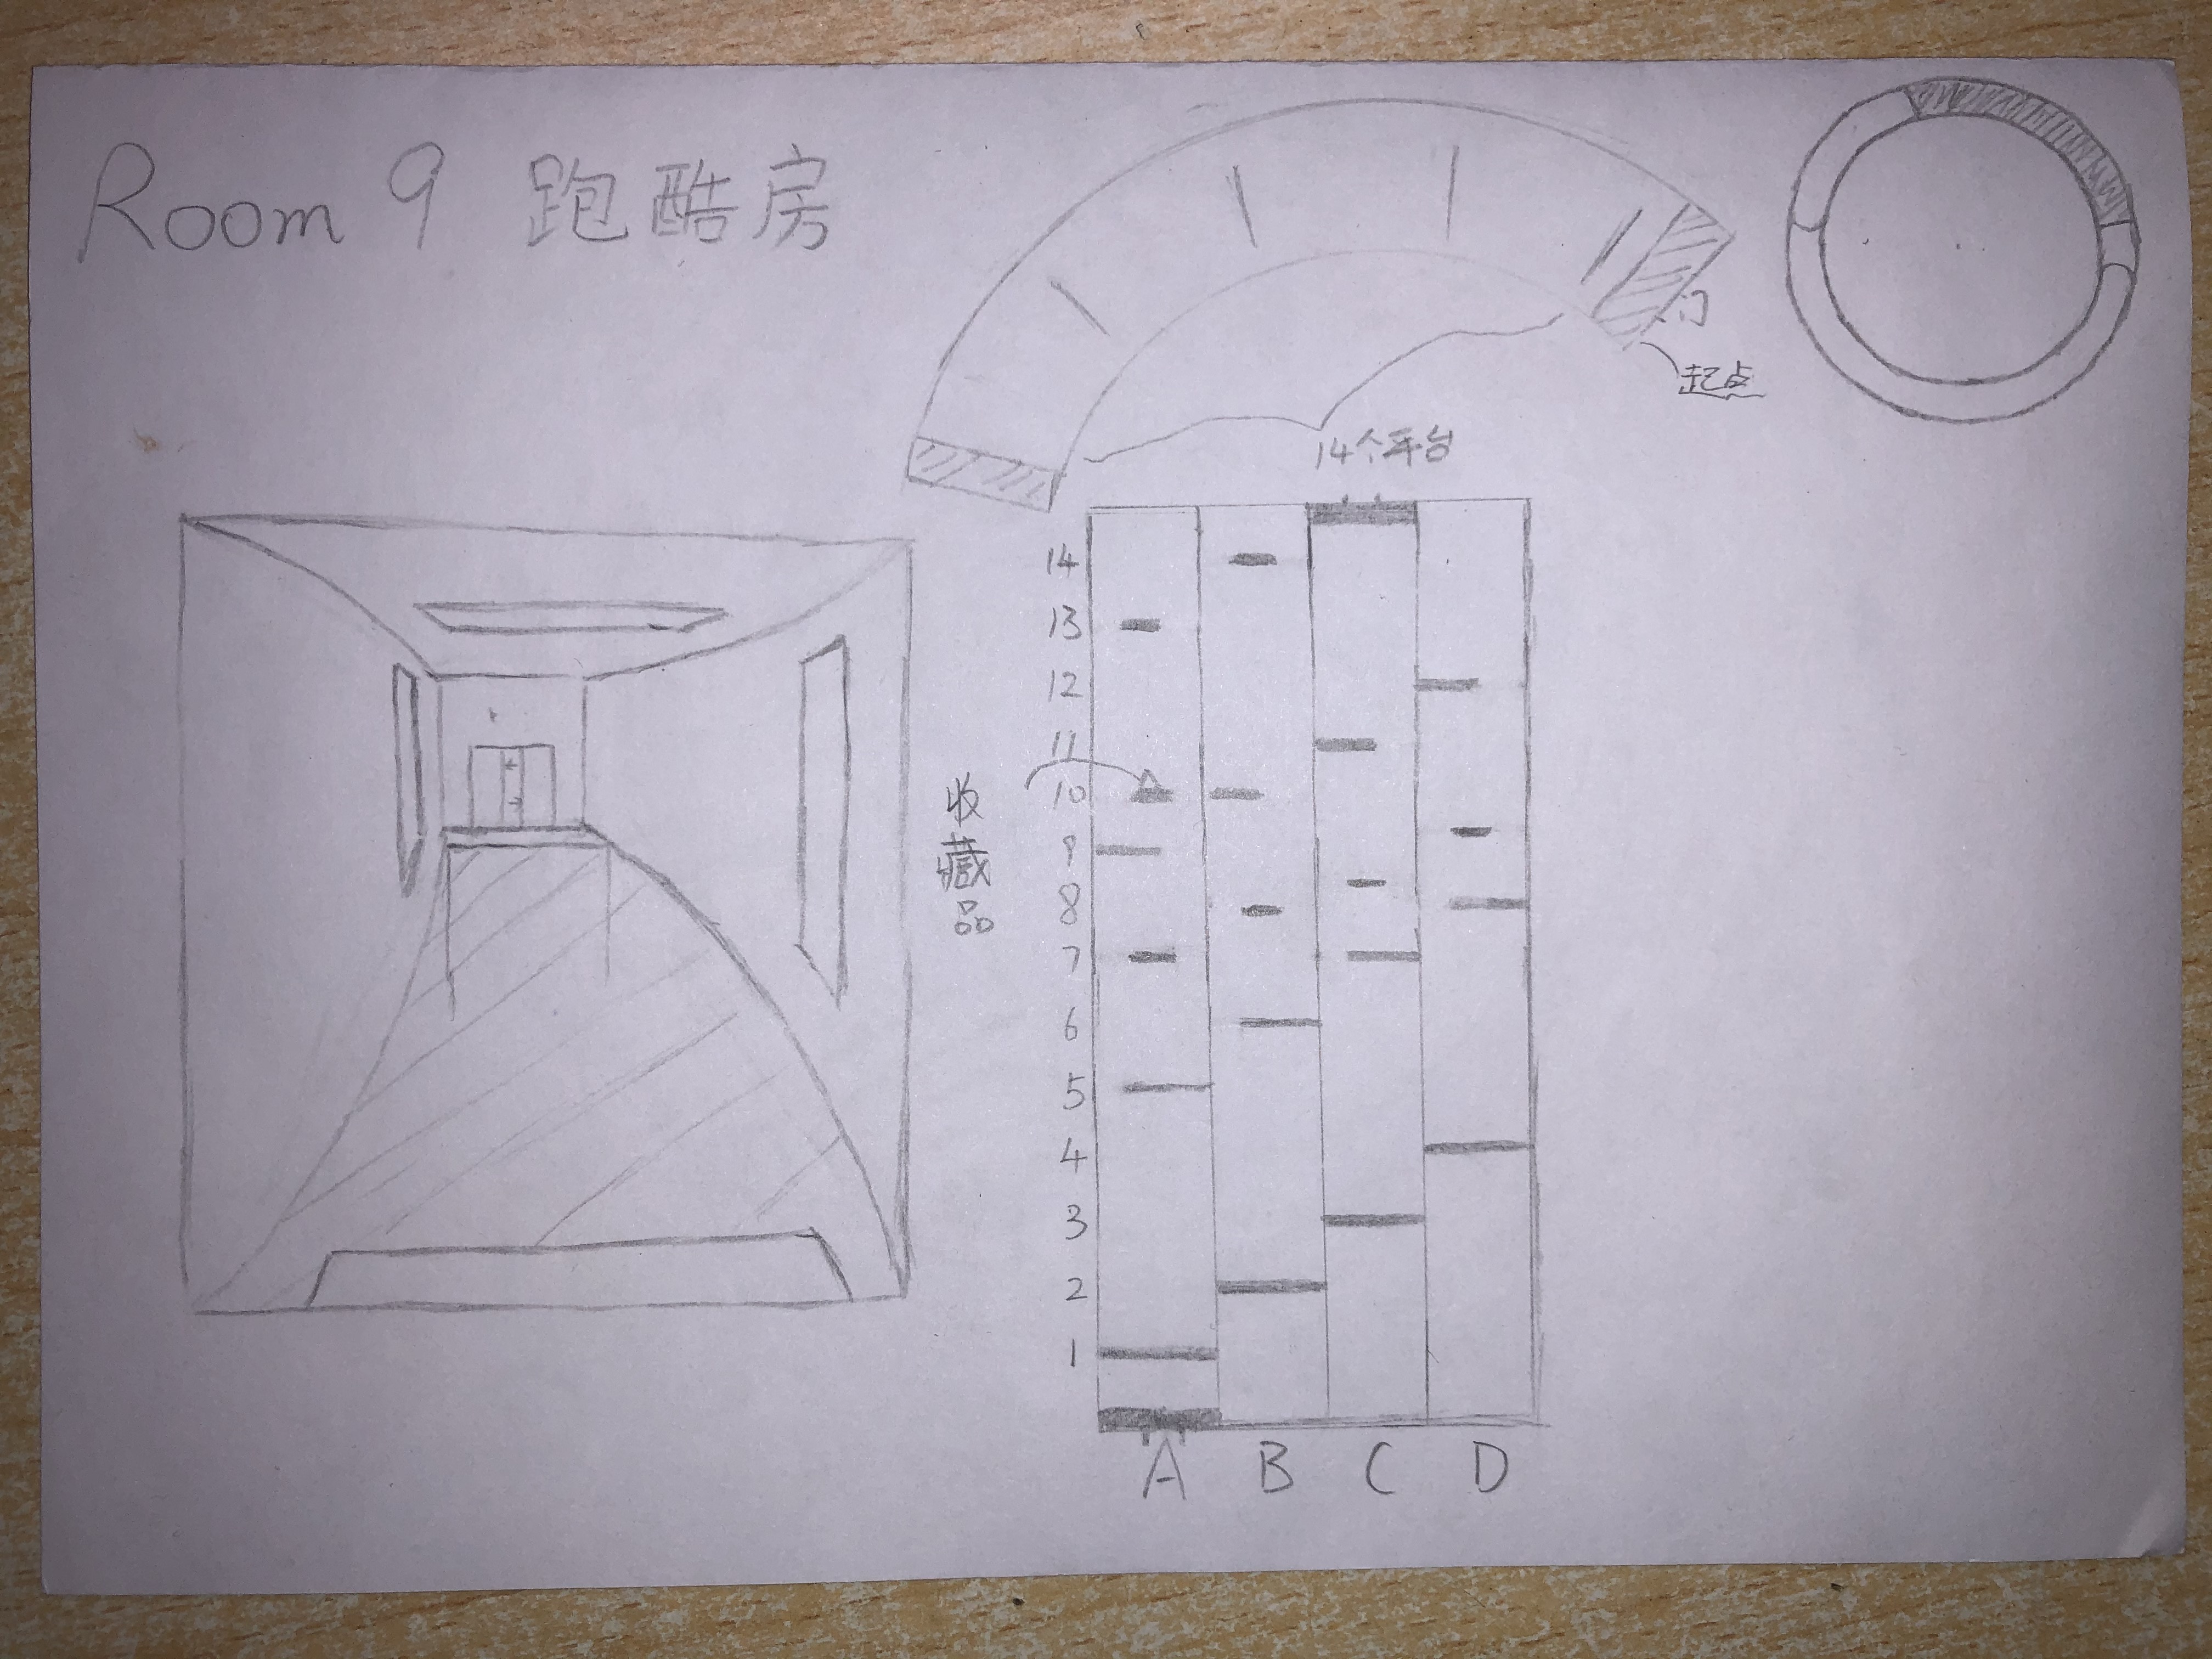 Room 9 跑酷房
门
起点
14个平台
14
13
12
11
10
9
8
7
6
5
4
3
2
1
收藏品
A B C D